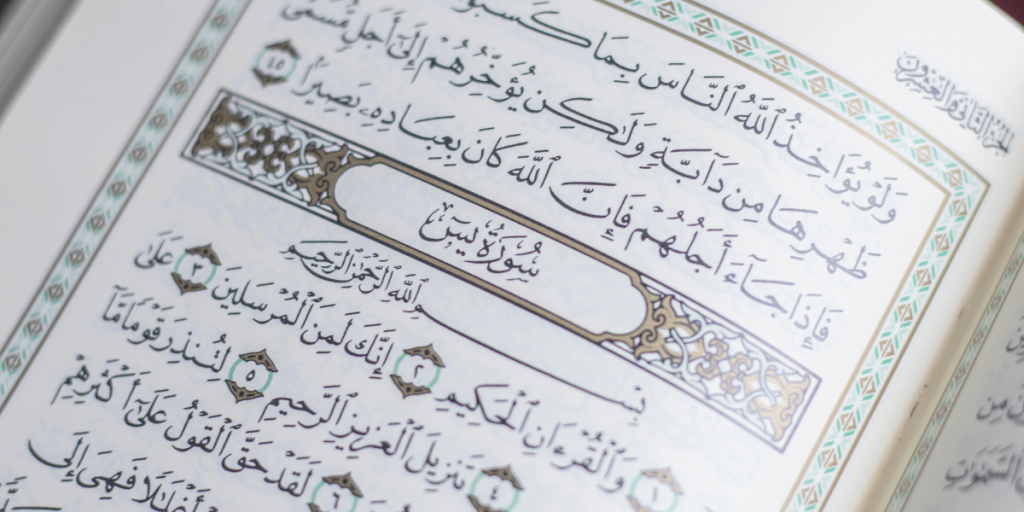 الجزء الثاني والعشرون
وَلَوْ يُؤَاخِذُ ٱللَّهُ ٱلنَّاسَ بِمَا كَسَبُوا۟
ظَهْرِهَا مِن دَآبَّةٍ وَلَٰكِن يُؤَخِّرُهُمْ إِلَىٰٓ أَجَلٍ مُّسَمًّى
فَإِذَا جَآءَ أَجَلُهُمْ فَإِنَّ ٱللَّهَ كَانَ بِعِبَادِهِۦ بَصِيرًا ٤٥
سُورَةُ يسٓ
بِسْمِ ٱللَّهِ ٱلرَّحْمَٰنِ ٱلرَّحِيمِ
١ وَٱلْقُرْءَانِ ٱلْحَكِيمِ ٢ إِنَّكَ لَمِنَ ٱلْمُرْسَلِينَ ٣ عَلَىٰ
٤ تَنزِيلَ ٱلْعَزِيزِ ٱلرَّحِيمِ ٥ لِتُنذِرَ قَوْمًا مَّآ
٦ لَقَدْ حَقَّ ٱلْقَوْلُ عَلَىٰٓ أَكْثَرِهِمْ
أَغْلَٰلًا فَهِىَ إِلَى
مِن
ٱلسَّمَٰوَٰتِ